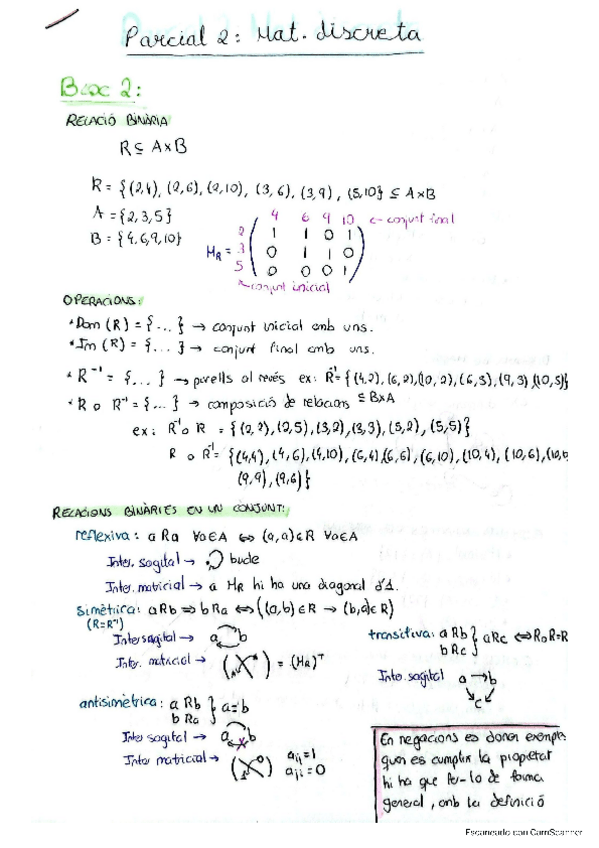 Parcial 2: Mat. discreta
Bloc 2:
RELACIÓ BINÀRIA
R ⊆ A×B
R = {(2,4), (2,6), (2,10), (3,6), (3,9), (5,10)} ⊆ A×B
A = {2,3,5}
B = {4,6,9,10}
4 6 9 10 ← conjunt final
2 1 1 0 1
M_R = 3 0 1 1 0
5 0 0 0 1
↖ conjunt inicial
OPERACIONS:
* Dom (R) = {...} → conjunt inicial amb uns.
* Im (R) = {...} → conjunt final amb uns.
* R⁻¹ = {...} → parells al revés ex: R⁻¹ = {(4,2), (6,2), (10,2), (6,3), (9,3), (10,5)}
⊆ B×A
* R o R⁻¹ = {...} → composició de relacions
ex: R⁻¹ o R = {(2,2), (2,5), (3,2), (3,3), (5,2), (5,5)}
R o R⁻¹ = {(4,4), (4,6), (4,10), (6,4), (6,6), (6,10), (10,4), (10,6), (10,
(9,9), (9,6)}
RELACIONS BINÀRIES EN UN CONJUNT:
reflexiva: a Ra ∀a∈A ⇔ (a,a)∈R ∀a∈A
Inter. sagital → bucle
Inter. matricial → a M_R hi ha una diagonal d'1.
Simètrica: aRb ⇒ bRa ⇔ ((a,b)∈R → (b,a)∈R)
(R=R⁻¹)
Inter sagital → a b
Inter. matricial → ( ) = (M_R)ᵀ
transitiva: a Rb } aRc ⇔ RoR=R
b Rc
Inter. sagital a → b
c
antisimètrica: a Rb } a=b
b Ra
Inter sagital → a b
Inter matricial → ( ) aᵢⱼ=1
aⱼᵢ=0
En negacions es donen exemples
quan es cumplir la propietat
hi ha que fer-lo de forma
general, amb la definició
Escaneado con CamScanner